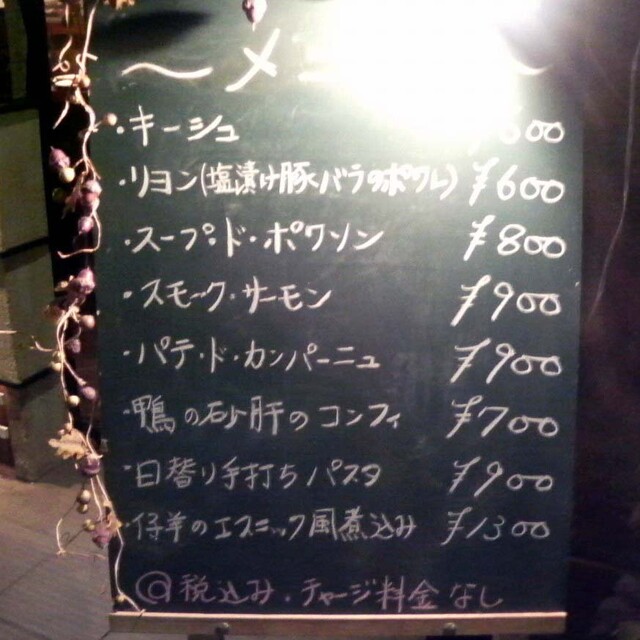 〜メニ〜
・キーシュ ¥600
・リヨン(塩漬け豚バラのポワレ) ¥600
・スープ・ド・ポワソン ¥800
・スモーク・サーモン ¥900
・パテ・ド・カンパーニュ ¥900
・鴨の砂肝のコンフィ ¥700
・日替り手打ちパスタ ¥900
・仔羊のエスニック風煮込み ¥1300
@税込み・チャージ料金なし